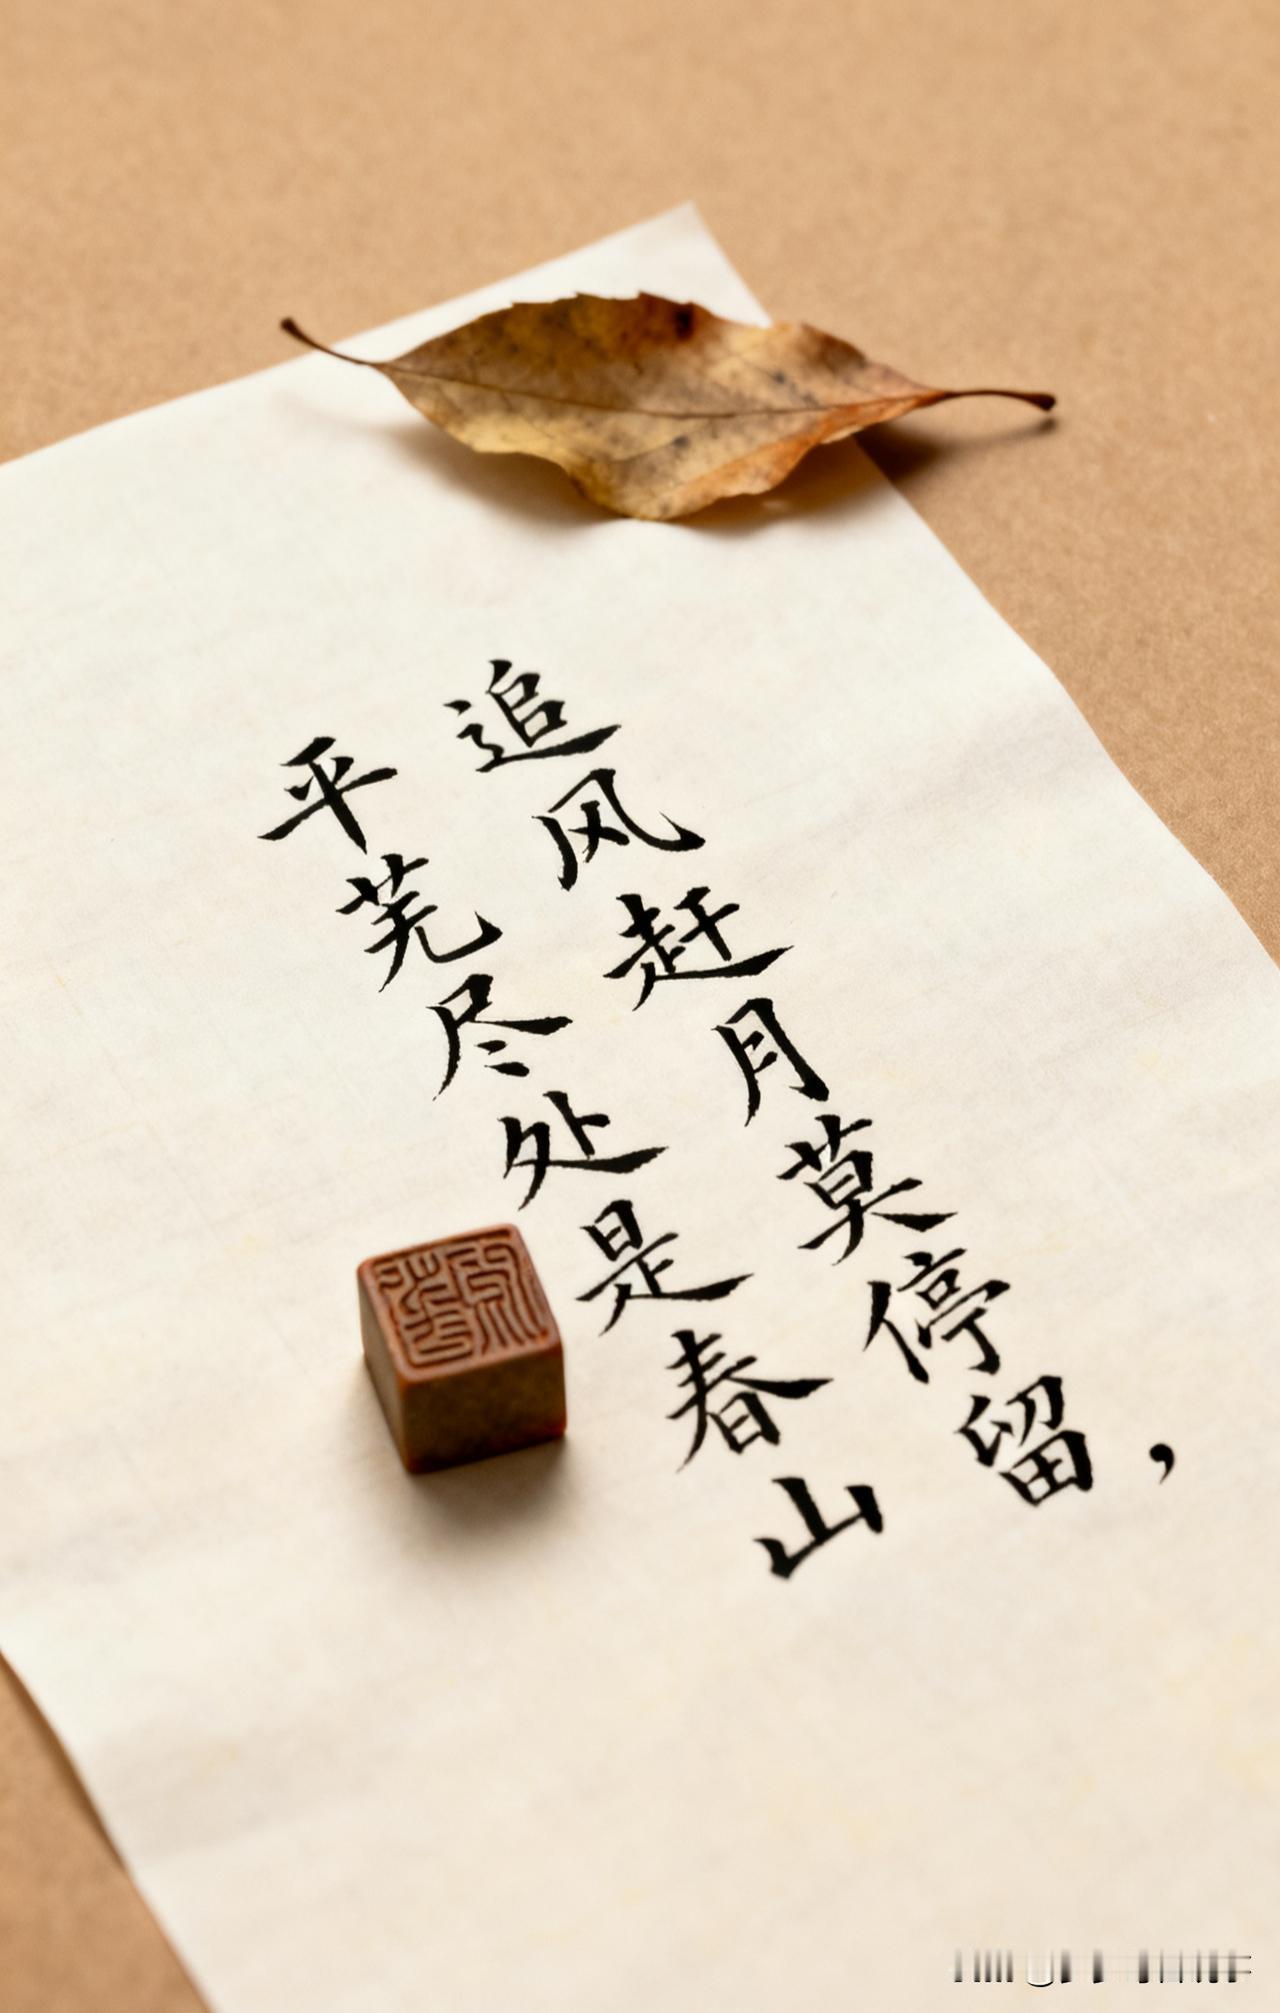 追风赶月莫停留，
平芜尽处是春山